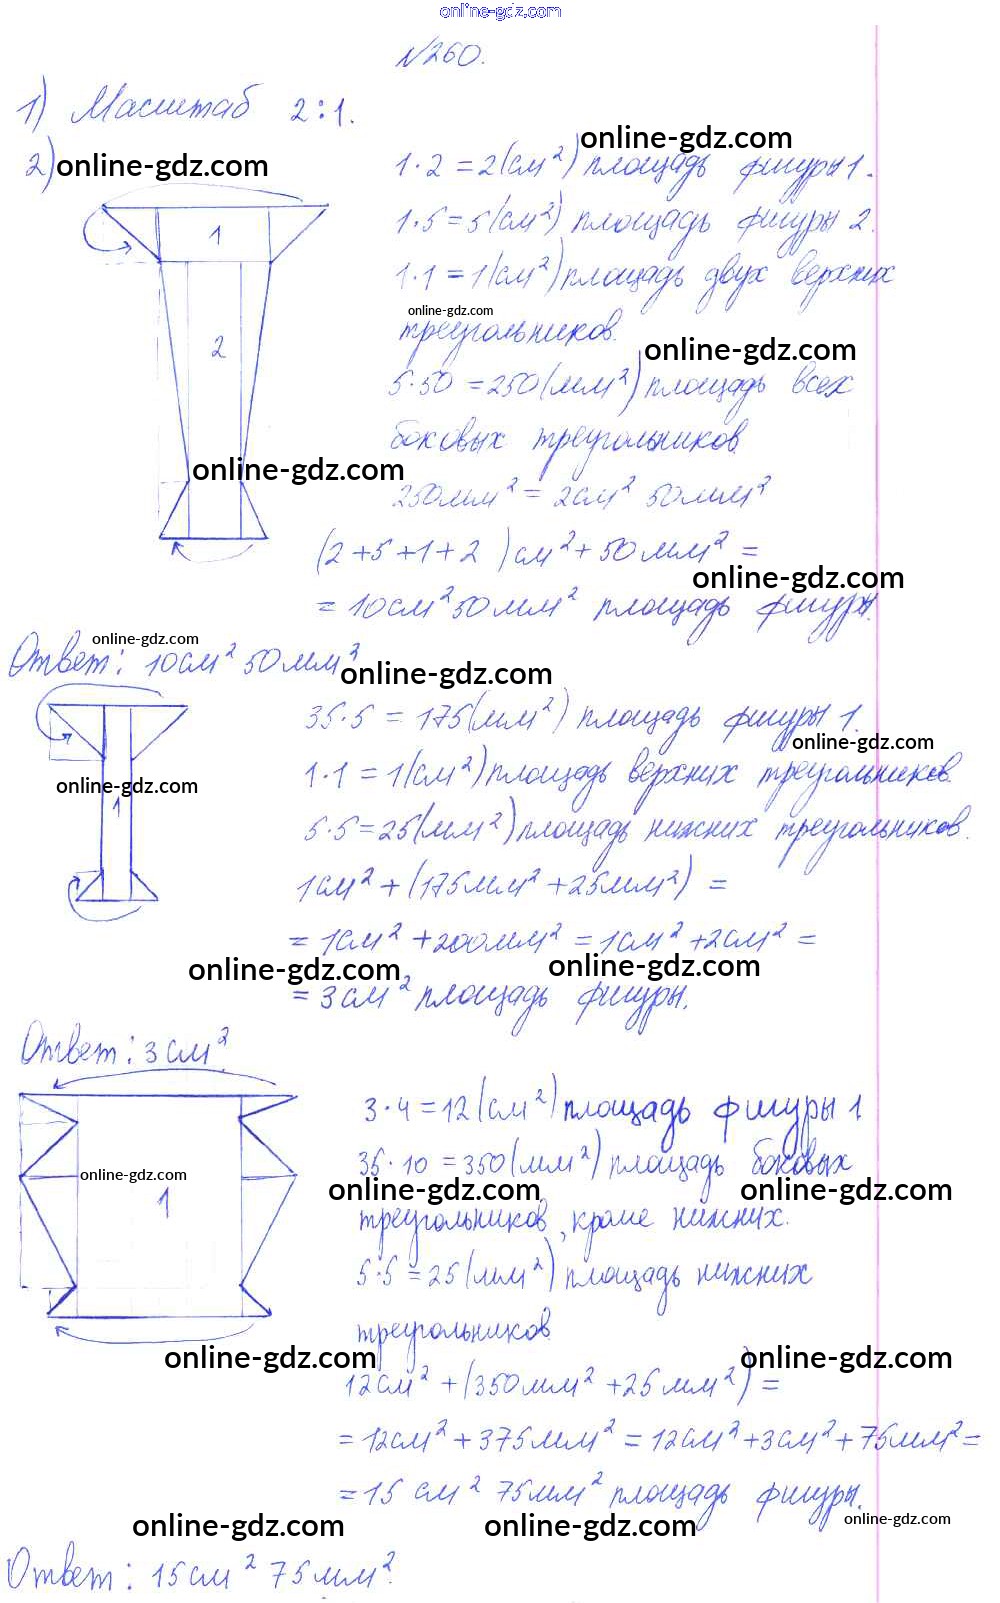 online-gdz.com
№260.
1) Масштаб 2:1.
2) online-gdz.com
online-gdz.com
1·2 = 2(см²) площадь фигуры 1.
1·5 = 5(см²) площадь фигуры 2.
1·1 = 1(см²) площадь двух верхних
online-gdz.com
треугольников.
online-gdz.com
5·50 = 250(мм²) площадь всех
боковых треугольников
online-gdz.com
250мм² = 2см² 50мм²
1
2
(2+5+1+2 )см²+50мм² =
online-gdz.com
= 10см² 50мм² площадь фигуры.
online-gdz.com
Ответ: 10см² 50мм²
online-gdz.com
35·5 = 175(мм²) площадь фигуры 1.
online-gdz.com
1·1 = 1(см²) площадь верхних треугольников.
online-gdz.com
1
5·5=25(мм²) площадь нижних треугольников.
1см² + (175мм² +25мм²) =
= 1см² +200мм² = 1см² +2см² =
online-gdz.com
online-gdz.com
= 3см² площадь фигуры.
Ответ: 3см².
3·4 = 12(см²) площадь фигуры 1
35·10 = 350(мм²) площадь боковых
online-gdz.com
online-gdz.com
online-gdz.com
1
треугольников, кроме нижних.
5·5 = 25(мм²) площадь нижних
треугольников
online-gdz.com
online-gdz.com
12см² +(350мм² +25мм²) =
= 12см² + 375мм² = 12см²+3см²+75мм² =
= 15 см² 75мм² площадь фигуры.
online-gdz.com
online-gdz.com
online-gdz.com
Ответ: 15см² 75мм².